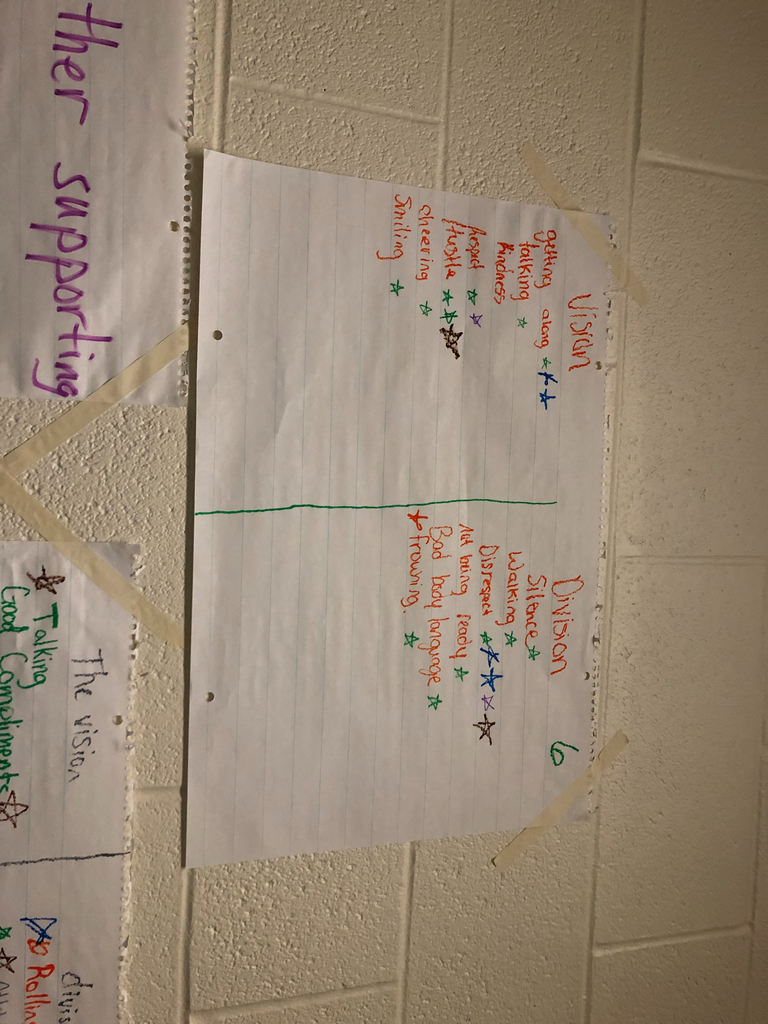 ther supporting
Vision
getting along
talking
kindness
Respect
Hustle
cheering
Smiling
Division
6
Silence
Walking
Disrespect
not being ready
Bad body language
frowning.
The vision
Talking
Good Compliments
divis
Rollin